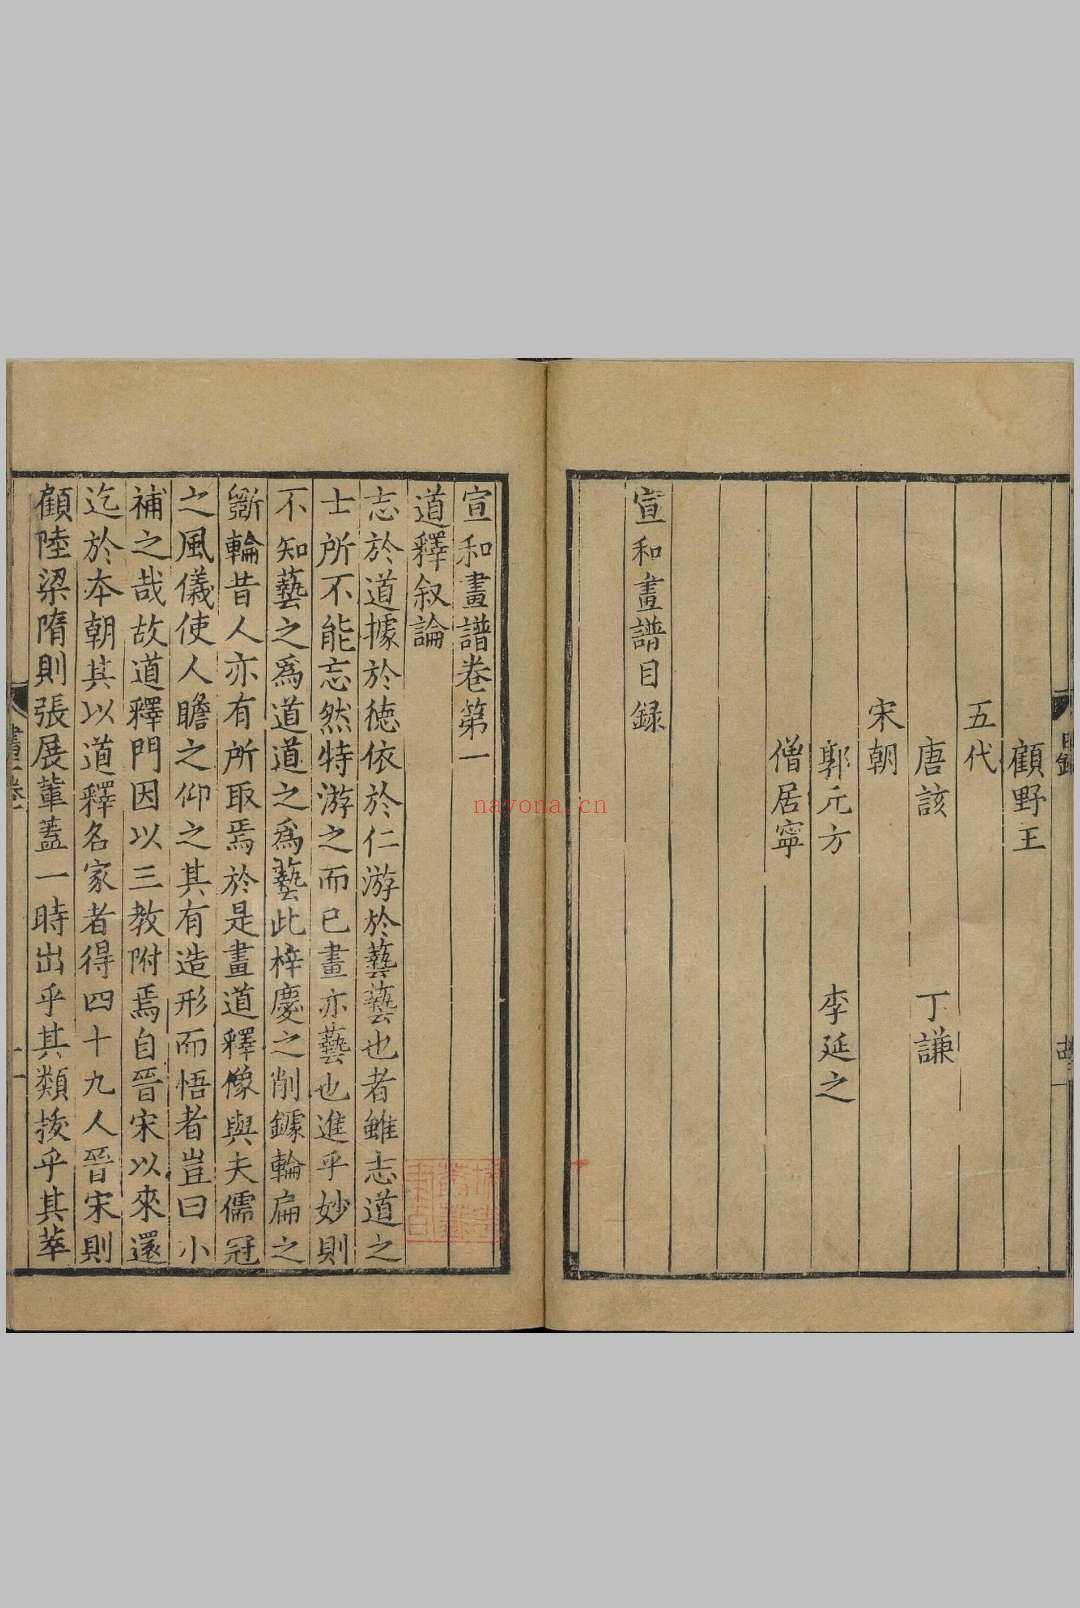 顧野王
五代
唐該 丁謙
宋朝
郭元方 李延之
僧居寧
宣和畫譜目録
宣和畫譜卷第一
道釋叙論
志於道據於德依於仁游於藝藝也者雖志道之
士所不能忘然特游之而已畫亦藝也進乎妙則
不知藝之爲道道之爲藝此梓慶之削鐻輪扁之
斵輪昔人亦有所取焉於是畫道釋像與夫儒冠
之風儀使人瞻之仰之其有造形而悟者豈曰小
補之哉故道釋門因以三教附焉自晉宋以來還
迄於本朝其以道釋名家者得四十九人晉宋則
顧陸梁隋則張展輩蓋一時出乎其類拔乎其萃
nayona.cn